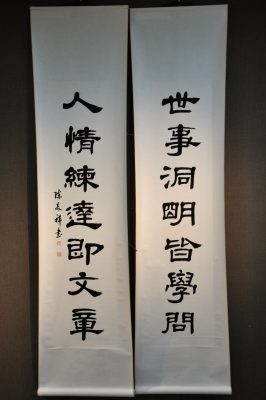 世事洞明皆學問
人情練達即文章
陳美祥書